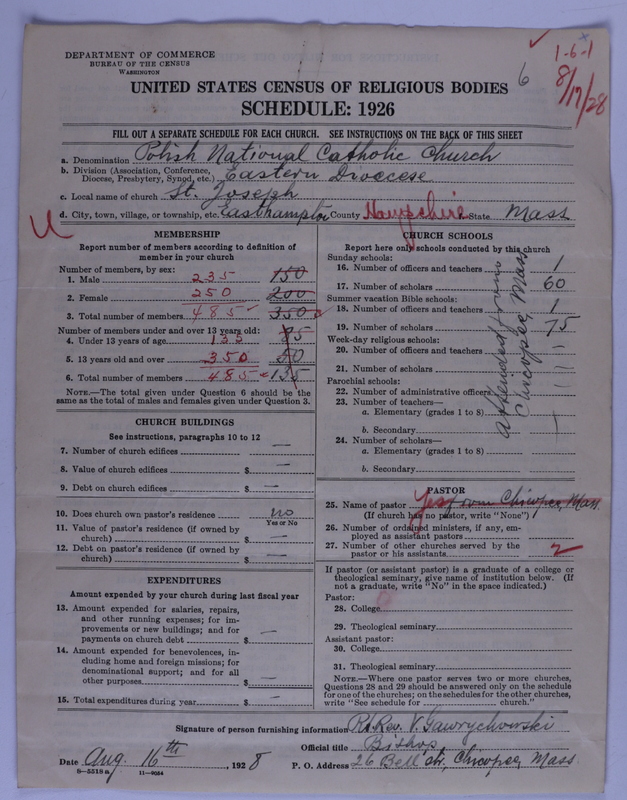 DEPARTMENT OF COMMERCE
BUREAU OF THE CENSUS
WASHINGTON
1-6-1
8/17/28
6
UNITED STATES CENSUS OF RELIGIOUS BODIES
SCHEDULE: 1926
FILL OUT A SEPARATE SCHEDULE FOR EACH CHURCH. SEE INSTRUCTIONS ON THE BACK OF THIS SHEET
a. Denomination Polish National Catholic Church
b. Division (Association, Conference, Diocese, Presbytery, Synod, etc.) Eastern Diocese
c. Local name of church St. Joseph
d. City, town, village, or township, etc. Easthampton County Hampshire State Mass
MEMBERSHIP
Report number of members according to definition of
member in your church
Number of members, by sex:
1. Male 235 150
2. Female 250 200
3. Total number of members 485 350
Number of members under and over 13 years old:
4. Under 13 years of age 135
5. 13 years old and over 350 50
6. Total number of members 485 135
NOTE.—The total given under Question 6 should be
same as the total of males and females given under Question 3.
CHURCH BUILDINGS
See instructions, paragraphs 10 to 12
7. Number of church edifices —
8. Value of church edifices $ —
9. Debt on church edifices $ —
10. Does church own pastor's residence no
Yes or No
11. Value of pastor's residence (if owned by
church) $ —
12. Debt on pastor's residence (if owned by
church) $ —
EXPENDITURES
Amount expended by your church during last fiscal year
13. Amount expended for salaries, repairs,
and other running expenses; for im-
provements or new buildings; and for
payments on church debt $ —
14. Amount expended for benevolences, in-
cluding home and foreign missions; for
denominational support; and for all
other purposes $ —
15. Total expenditures during year $ —
CHURCH SCHOOLS
Report here only schools conducted by this church
Sunday schools:
16. Number of officers and teachers 1
17. Number of scholars 60
Summer vacation Bible schools:
18. Number of officers and teachers 1
19. Number of scholars 75
Week-day religious schools:
20. Number of officers and teachers
21. Number of scholars
Parochial schools:
22. Number of administrative officers
23. Number of teachers—
a. Elementary (grades 1 to 8)
b. Secondary
24. Number of scholars—
a. Elementary (grades 1 to 8)
b. Secondary
attended from
Chicopee, Mass
PASTOR
25. Name of pastor Yes from Chicopee, Mass.
(If church has no pastor, write "None")
26. Number of ordained ministers, if any, em-
ployed as assistant pastors
27. Number of other churches served by the
pastor or his assistants 2
If pastor (or assistant pastor) is a graduate of a college or
theological seminary, give name of institution below. (If
not a graduate, write "No" in the space indicated.)
Pastor:
28. College
29. Theological seminary
Assistant pastor:
30. College
31. Theological seminary
NOTE.—Where one pastor serves two or more churches,
Questions 28 and 29 should be answered only on the schedule
for one of the churches; on the schedules for the other churches,
write "See schedule for church."
Signature of person furnishing information Rt. Rev. V. Gawrychowski
Official title Bishop
Date Aug. 16th, 1928 P. O. Address 26 Bell str, Chicopee, Mass.
8—5518 a 11—9054